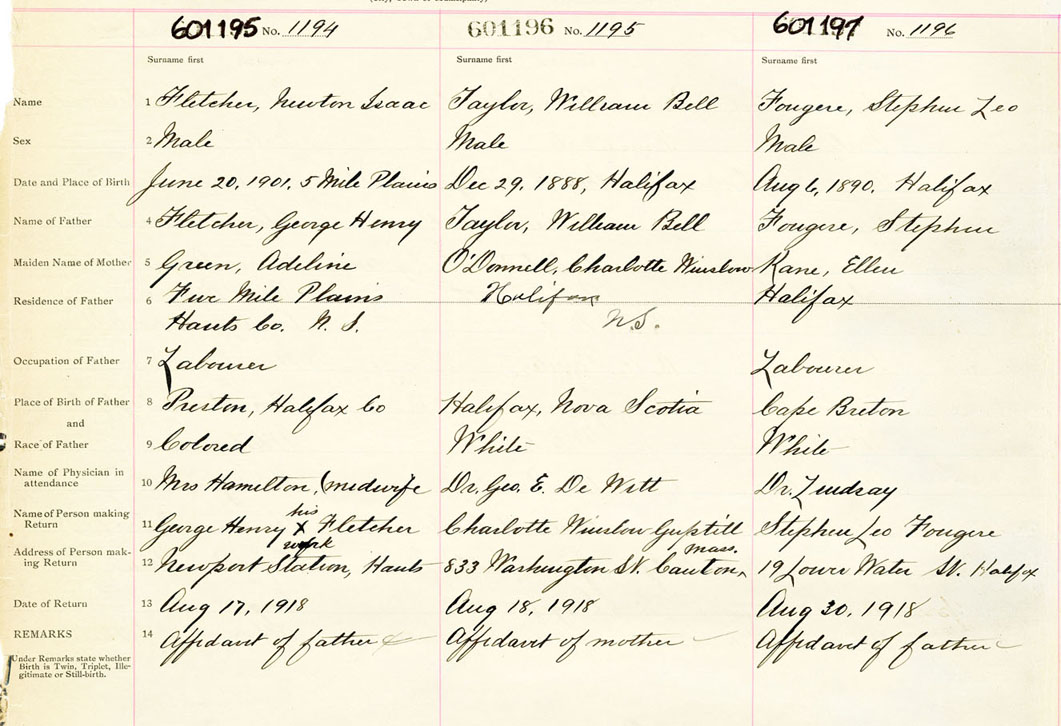 601195 No. 1194 601196 No. 1195 601197 No. 1196
Surname first Surname first Surname first
Name 1 Fletcher, Newton Isaac Taylor, William Bell Fougere, Stephen Leo
Sex 2 Male Male Male
Date and Place of Birth June 20, 1901, 5 Mile Plains Dec 29, 1888, Halifax Aug 6, 1890, Halifax
Name of Father 4 Fletcher, George Henry Taylor, William Bell Fougere, Stephen
Maiden Name of Mother 5 Green, Adeline O'Donnell, Charlotte Winslow Kane, Ellen
Residence of Father 6 Five Mile Plains Halifax Halifax
Hants Co. N. S. N.S.
Occupation of Father 7 Labourer Labourer
Place of Birth of Father 8 Preston, Halifax Co Halifax, Nova Scotia Cape Breton
and
Race of Father 9 Colored White White
Name of Physician in
attendance 10 Mrs Hamilton, (midwife Dr. Geo. E. De Witt Dr. Lindsay
his
Name of Person making
Return 11 George Henry X Fletcher Charlotte Winslow Guptill Stephen Leo Fougere
mark Mass.
Address of Person mak-
ing Return 12 Newport Station, Hants 833 Washington St. Canton, 19 Lower Water St. Halifax
Date of Return 13 Aug 17, 1918 Aug 18, 1918 Aug 30, 1918
REMARKS 14 Affidavit of father Affidavit of mother Affidavit of father
Under Remarks state whether
Birth is Twin, Triplet, Ille-
gitimate or Still-birth.